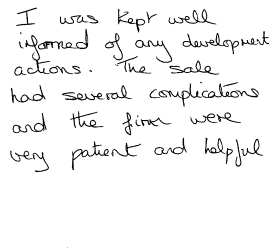 I was kept well
informed of any development
actions. The sale
had several complications
and the firm were
very patient and helpful